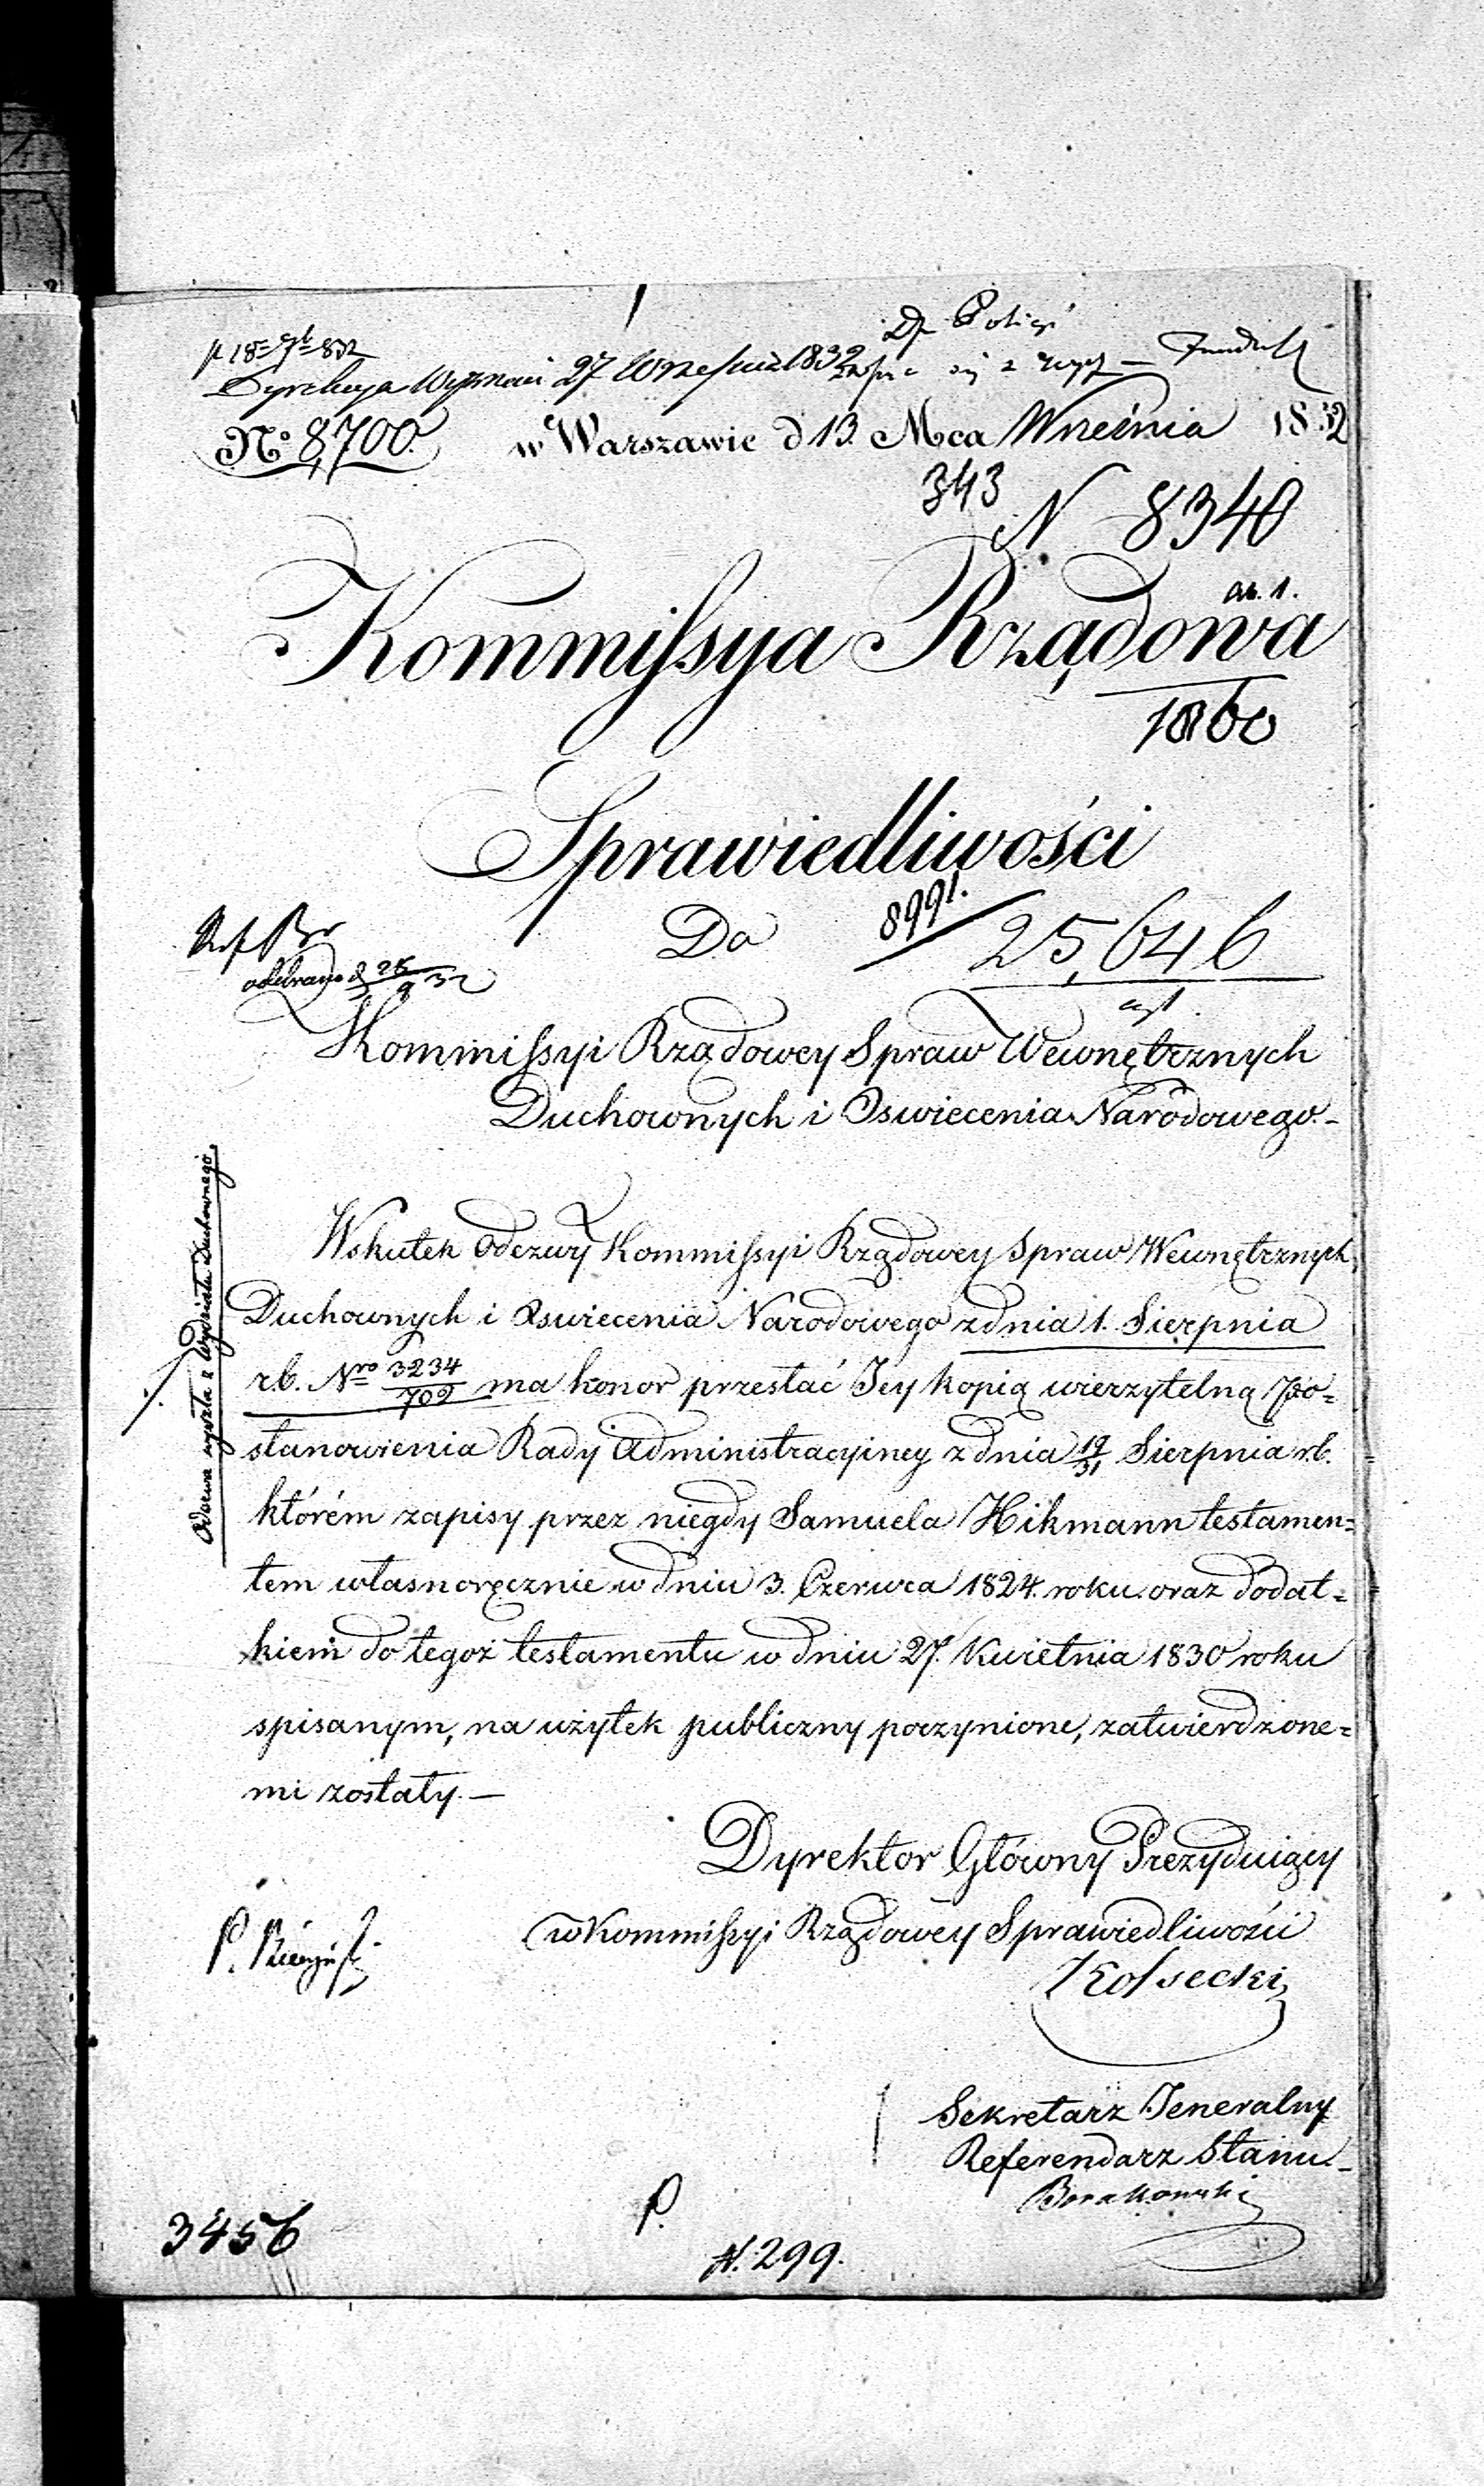 Dyrekcya Wyznań 27 Września 1832
No 8,700. w Warszawie d 13. Mca Września 1832
343
N 8340
Kommissya Rządowa
1860
Sprawiedliwości
Do
8991.
25,646
odebrano d 26/9 32
Kommissyi Rządowey Spraw Wewnętrznych
Duchownych i Oswiecenia Narodowego.-
Odezwa wyszła z Wydziału Duchownego
Wskutek Odezwy Kommissyi Rządowey Spraw Wewnętrznych,
Duchownych i Oswiecenia Narodowego z dnia 1. Sierpnia
r.b. Nro 3234/702 ma honor przesłać Jey kopią wierzytelną Po=
stanowienia Rady Administracyiney z dnia 19/31 Sierpnia r.b.
którém zapisy przez niegdy Samuela Hikmann testamen=
tem własnoręcznie w dniu 3. Czerwca 1824. roku oraz dodat=
kiem do tegoż testamentu w dniu 27. Kwietnia 1830 roku
spisanym, na użytek publiczny poczynione, zatwierdzone=
mi zostały.—
Dyrektor Główny Prezyduiący
w Kommissyi Rządowey Sprawiedliwości
Kossecki
Sekretarz Jeneralny
Referendarz Stanu.-
3456
P.
N. 299.